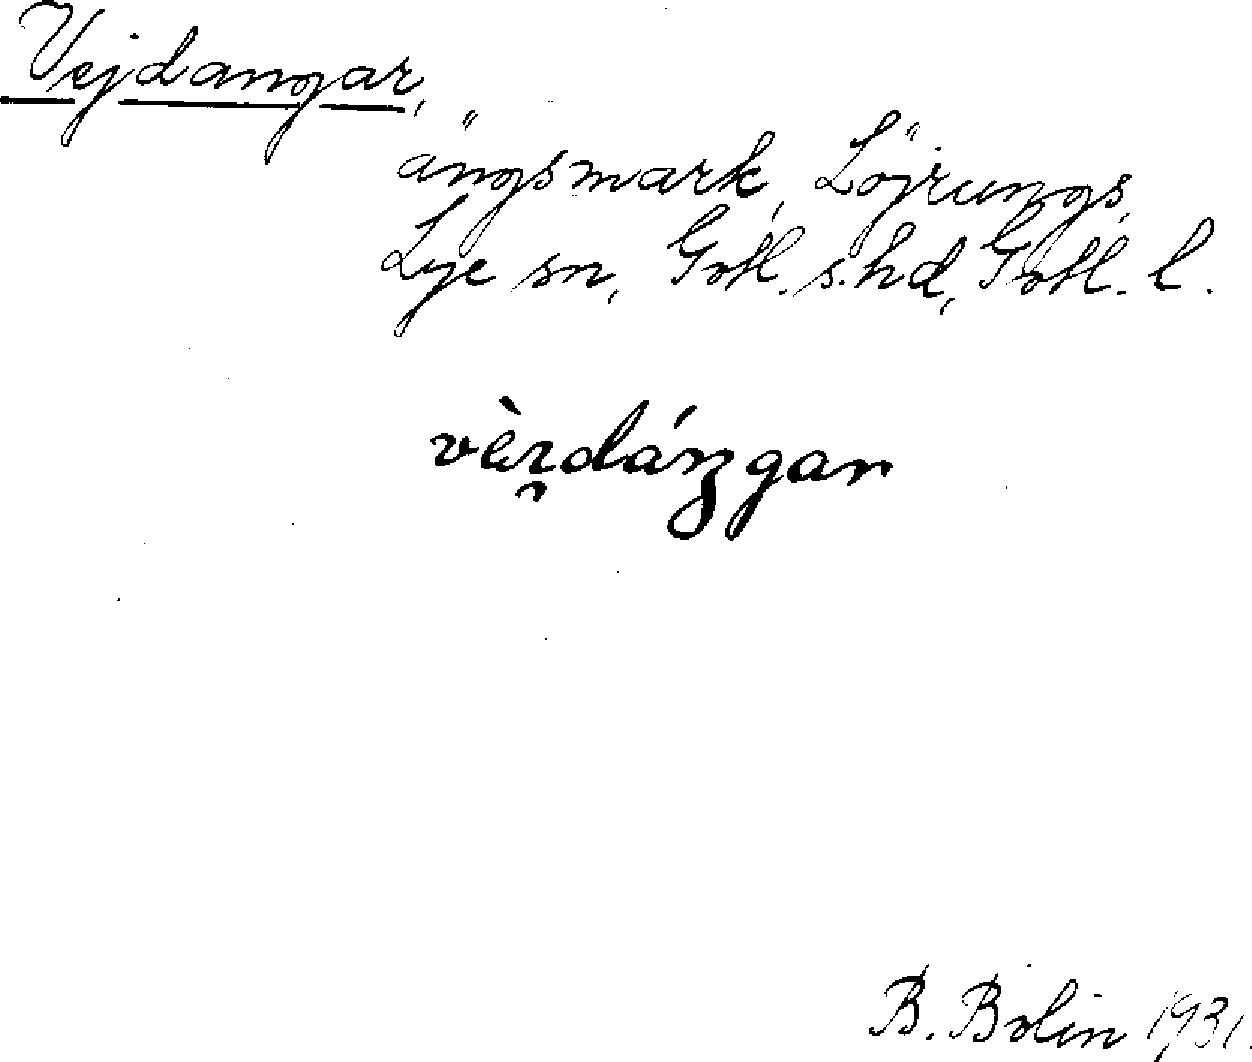 Vejdangar,
ängsmark, Löjrungs,
Lye sn, Gotl. s. hd, Gotl. l.
B. Bolin 1931.